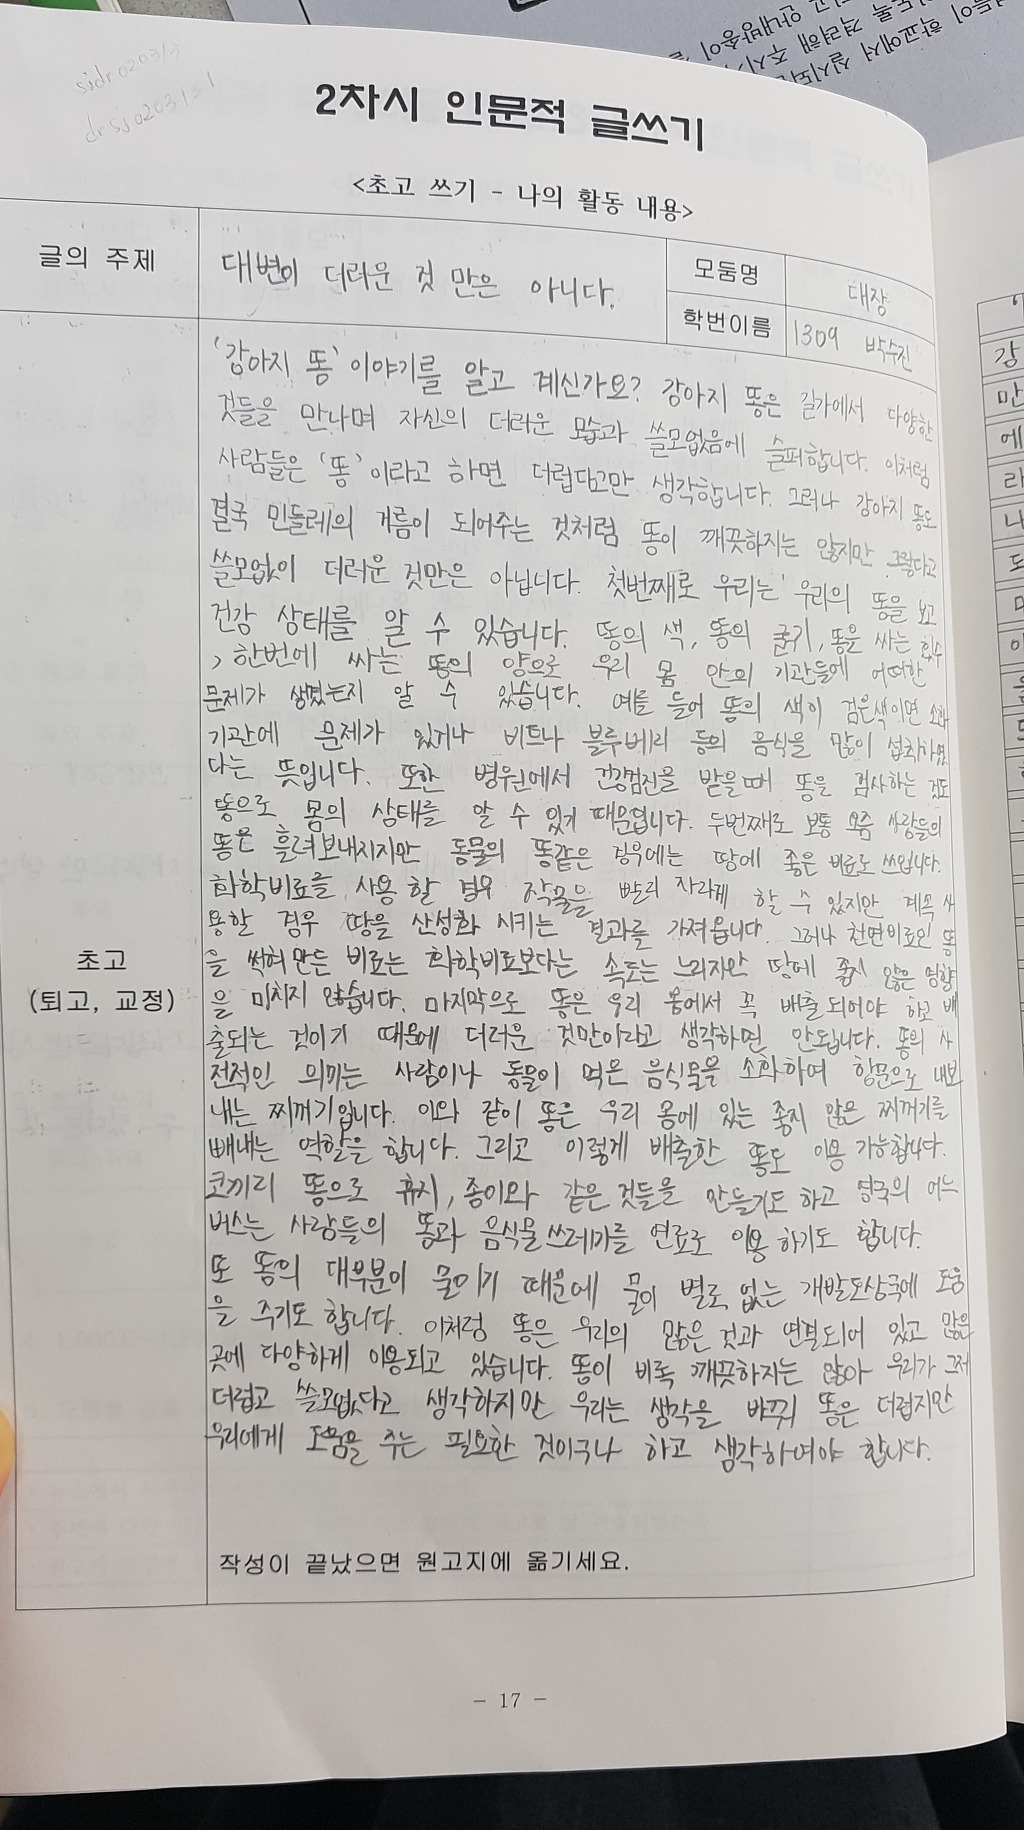 2차시 인문적 글쓰기
<초고 쓰기 - 나의 활동 내용>
글의 주제
대변이 더러운 것 만은 아니다.
모둠명
대장
학번이름
1309 박수진
'강아지 똥' 이야기를 알고 계신가요? 강아지 똥은 길가에서 다양한
것들을 만나며 자신의 더러운 모습과 쓸모없음에 슬퍼합니다. 이처럼
사람들은 '똥'이라고 하면 더럽다고만 생각합니다. 그러나 강아지 똥도
결국 민들레의 거름이 되어주는 것처럼 똥이 깨끗하지는 않지만 그렇다고
쓸모없이 더러운 것만은 아닙니다. 첫번째로 우리는 우리의 똥을 보고
건강 상태를 알 수 있습니다. 똥의 색, 똥의 굵기, 똥을 싸는 횟수
, 한번에 싸는 똥의 양으로 우리 몸 안의 기관들에 어떠한
문제가 생겼는지 알 수 있습니다. 예를 들어 똥의 색이 검은색이면 소화
기관에 문제가 있거나 비트나 블루베리 등의 음식을 많이 섭취하였
다는 뜻입니다. 또한 병원에서 건강검진을 받을때 똥을 검사하는 것도
똥으로 몸의 상태를 알 수 있기 때문입니다. 두번째로 보통 요즘 사람들의
똥은 흘려보내지지만 동물의 똥같은 경우에는 땅에 좋은 비료로 쓰입니다.
화학비료를 사용 할 경우 작물을 빨리 자라게 할 수 있지만 계속 사
용할 경우 땅을 산성화 시키는 결과를 가져옵니다. 그러나 천연비료인 똥
을 썩혀 만든 비료는 화학비료보다는 속도는 느리지만 땅에 좋지 않은 영향
을 미치지 않습니다. 마지막으로 똥은 우리 몸에서 꼭 배출되어야 하고 배
출되는 것이기 때문에 더러운 것만이라고 생각하면 안됩니다. 똥의 사
전적인 의미는 사람이나 동물이 먹은 음식물을 소화하여 항문으로 내보
내는 찌꺼기입니다. 이와 같이 똥은 우리 몸에 있는 좋지 않은 찌꺼기를
빼내는 역할을 합니다. 그리고 이렇게 배출한 똥도 이용 가능합니다.
코끼리 똥으로 휴지, 종이와 같은 것들을 만들기도 하고 영국의 어느
버스는 사람들의 똥과 음식물 쓰레기를 연료로 이용 하기도 합니다.
또 똥의 대부분이 물이기 때문에 물이 별로 없는 개발도상국에 도움
을 주기도 합니다. 이처럼 똥은 우리의 많은 것과 연결되어 있고 많은
곳에 다양하게 이용되고 있습니다. 똥이 비록 깨끗하지는 않아 우리가 그저
더럽고 쓸모없다고 생각하지만 우리는 생각을 바꿔 똥은 더럽지만
우리에게 도움을 주는 필요한 것이구나 하고 생각하여야 합니다.
초고
(퇴고, 교정)
작성이 끝났으면 원고지에 옮기세요.
- 17 -